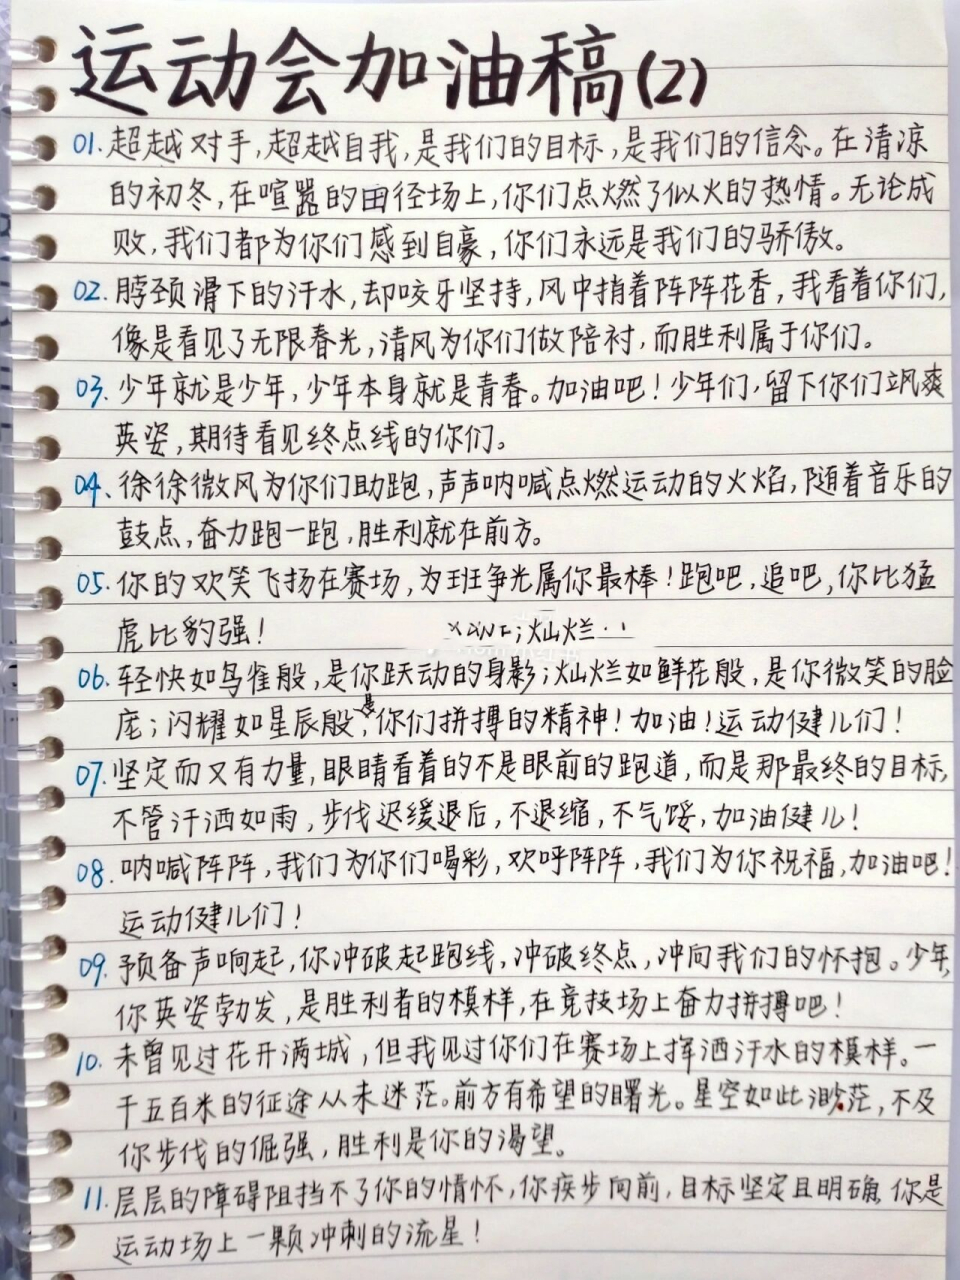 运动会加油稿(2)
01.超越对手,超越自我,是我们的目标,是我们的信念。在清凉
的初冬,在喧嚣的田径场上,你们点燃了似火的热情。无论成
败,我们都为你们感到自豪,你们永远是我们的骄傲。
02.脖颈滑下的汗水,却咬牙坚持,风中捎着阵阵花香,我看着你们,
像是看见了无限春光,清风为你们做陪衬,而胜利属于你们。
03.少年就是少年,少年本身就是青春。加油吧!少年们,留下你们飒爽
英姿,期待看见终点线的你们。
04、徐徐微风为你们助跑,声声呐喊点燃运动的火焰,随着音乐的
鼓点,奋力跑一跑,胜利就在前方。
05.你的欢笑飞扬在赛场,为班争光属你最棒!跑吧,追吧,你比猛
虎比豹强!
;灿烂
06.轻快如鸟雀般,是你跃动的身影;灿烂如鲜花般,是你微笑的脸
庞;闪耀如星辰般,是你们拼搏的精神!加油!运动健儿们!
07.坚定而又有力量,眼睛看着的不是眼前的跑道,而是那最终的目标,
不管汗洒如雨,步伐迟缓退后,不退缩,不气馁,加油健儿!
08.呐喊阵阵,我们为你们喝彩,欢呼阵阵,我们为你祝福,加油吧!
运动健儿们!
09.预备声响起,你冲破起跑线,冲破终点,冲向我们的怀抱。少年,
你英姿勃发,是胜利者的模样,在竞技场上奋力拼搏吧!
10.未曾见过花开满城,但我见过你们在赛场上挥洒汗水的模样。一
千五百米的征途从未迷茫。前方有希望的曙光。星空如此渺茫,不及
你步伐的倔强,胜利是你的渴望。
11.层层的障碍阻挡不了你的情怀,你疾步向前,目标坚定且明确,你是
运动场上一颗冲刺的流星!